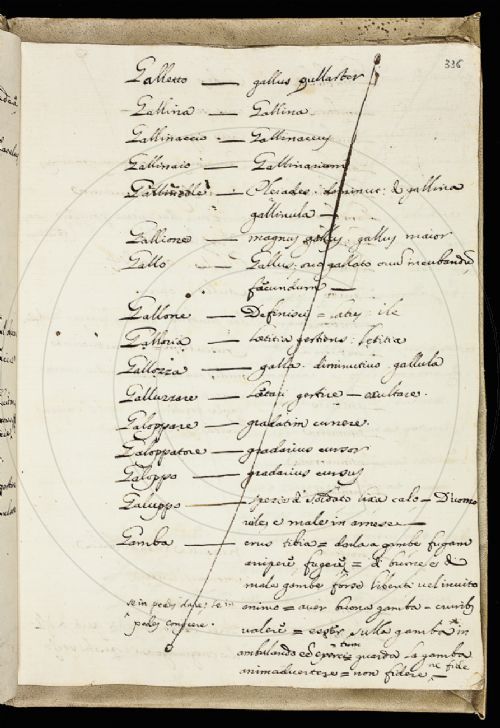 336
Galletto — gallus pullaster
Gallina — Gallina
Gallinaccio — Gallinaceus
Gallinaio — Gallinarium
Gallinelle — Pleiades. diminut: di gallina
gallinula —
Gallione — magnus gallus, gallus maior
Gallo — Gallus: ovo gallato ovum incubandum
fæcundum —
Gallone — = latus: ile
Galloria — Lætitia gestiens: letitia
Gallozza — galla. diminutivo gallula
Galluzzare — Lætari gestire — exultare.
Galoppare — gradatim currere.
Galoppatore — gradarius cursor
Galoppo — gradarius cursus
Galuppo — specie di soldato calo — D'uomo
vile, e male in arnese —
Gamba — crus tibia = darla a gambe fugam
aripere fugere = di buone, e di
male gambe forse libenti vel invito
animo = aver buona gamba — cruribus
valere = sulla gamba in
ambulando guarda la gamba
animadvertere = non fidere —
se in pedes dare; se in
pedes conijcere.